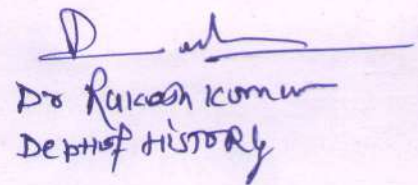 Dr Rakesh Kumar
Dept of HISTORY